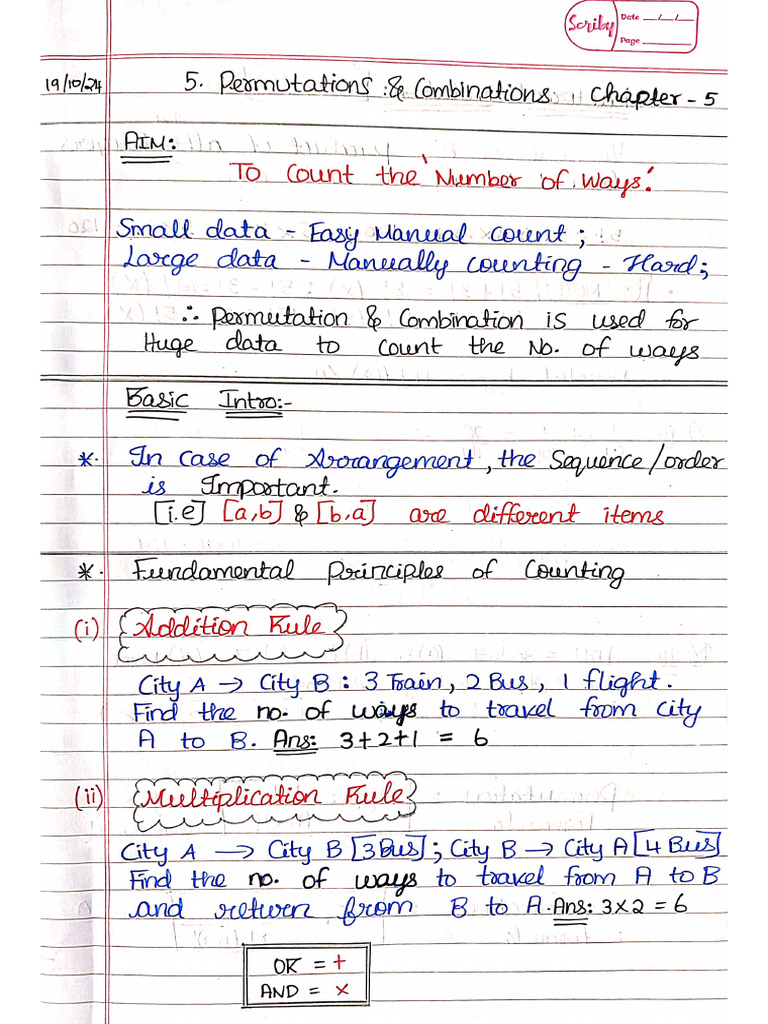 Scriby
Date __/__/__
Page ______
19/10/24
5. Permutations & Combinations Chapter - 5
AIM:
To count the 'Number of ways'.
Small data - Easy Manual count ;
Large data - Manually counting - Hard;
∴ Permutation & Combination is used for
Huge data to count the No. of ways
Basic Intro:-
*. In case of Arrangement, the Sequence/order
is Important.
[i.e] [a,b] & [b,a] are different items
*. Fundamental Principles of Counting
(i) Addition Rule
City A → City B : 3 Train, 2 Bus, 1 flight.
Find the no. of ways to travel from city
A to B. Ans: 3+2+1 = 6
(ii) Multiplication Rule
City A → City B [3 Bus] ; City B → City A [4 Bus]
Find the no. of ways to travel from A to B
and return from B to A. Ans: 3×2 = 6
OR = +
AND = ×